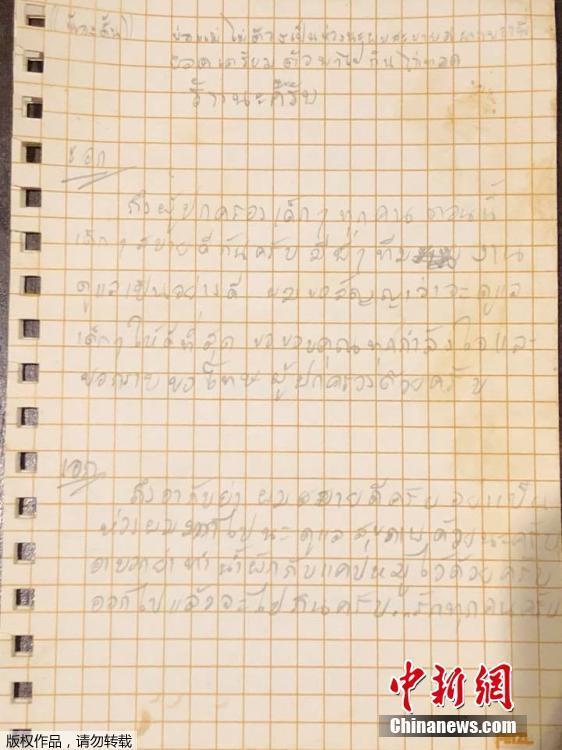 พ่อแม่ ไม่ต้องเป็นห่วงนะผมสบายดี
ยอดเตรียมตัวพาไปกินไก่ทอด
นะครับ
เอก
ถึงผู้ปกครองเด็กๆ ทุกคน ตอนนี้
เด็กๆ สบายดีกันครับ มีพี่ๆ ทีม งาน
ดูแลเป็นอย่างดี ผมขอสัญญาว่าจะดูแล
เด็กๆ ให้ดีที่สุด ขอขอบคุณทุกกำลังใจและ
ขอกราบขอโทษ ผู้ปกครองด้วยครับ
เอก
ถึงอากับย่า ผมสบายดีครับ อย่าเป็น
ห่วงผมมากไปนะ ดูแลสุขภาพด้วยนะครับ
อาบอกย่าทำน้ำผักกับแคปหมูไว้ด้วยครับ
ออกไปแล้วจะไปกินครับ..รักทุกคนครับ
中新网
Chinanews.com
版权作品，请勿转载